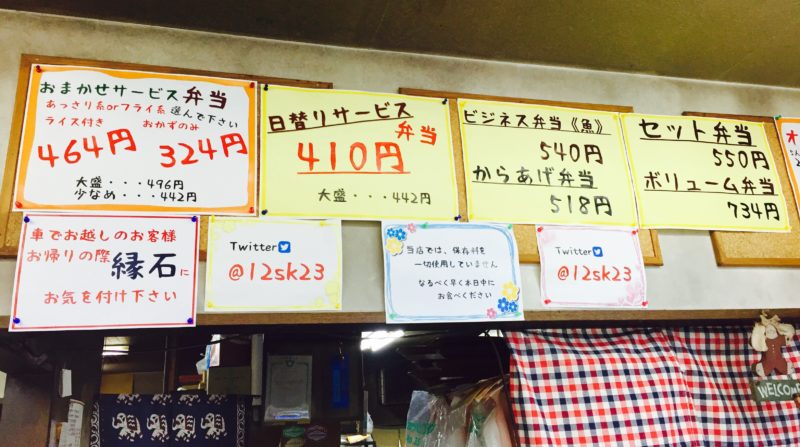 おまかせサービス弁当
あっさり系orフライ系 選んで下さい
ライス付き おかずのみ
464円 324円
大盛・・・496円
少なめ・・・442円
日替りサービス
弁当
410円
大盛・・・442円
ビジネス弁当《魚》
540円
からあげ弁当
518円
セット弁当
550円
ボリューム弁当
734円
オ
車でお越しのお客様
お帰りの際 縁石に
お気を付け下さい
Twitter
@12sk23
当店では、保存料を
一切使用していません
なるべく早く本日中に
お食べください
Twitter
@12sk23
WELCOME